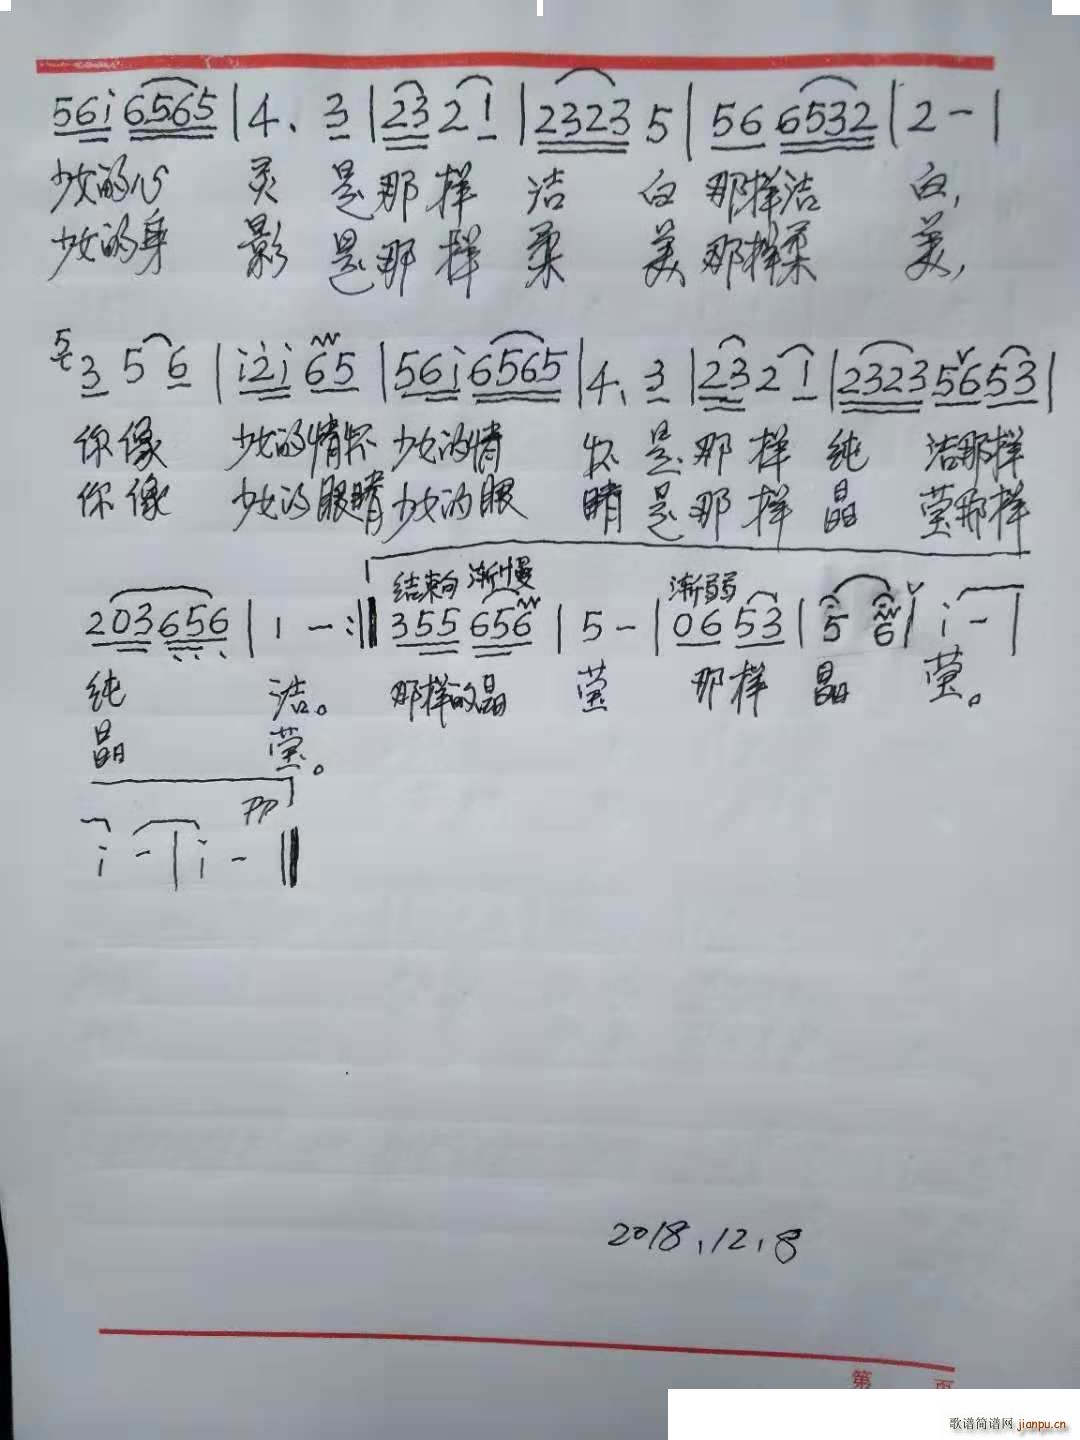 56i 6565 | 4. 3 | 23 2 1 | 2323 5 | 56 6532 | 2 - |
少女的心 灵 是那样 洁 白 那样洁 白,
少女的身 影 是那样 柔 美 那样柔 美,
5 3 5 6 | i2i 65 | 56i 6565 | 4. 3 | 23 2 1 | 2323 5653 |
你像 少女的情怀 少女的情 怀 是那样 纯 洁那样
你像 少女的眼睛 少女的眼 睛是那样 晶 莹那样
结束句 渐慢 渐弱
203 656 | 1 - :|| 355 656 | 5 - | 06 53 | 5 6 | i - |
纯 洁。 那样的晶 莹 那样 晶 莹。
晶 莹。
PP
i - | i - ||
2018.12.8
第 页
歌谱简谱网 jianpu.cn